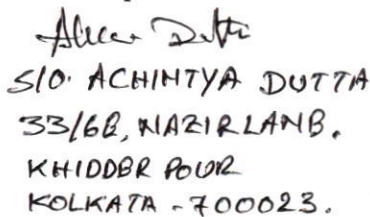 Dutta
S/O. ACHINTYA DUTTA
33/6B, NAZIR LANE.
KHIDDER POUR
KOLKATA - 700023.